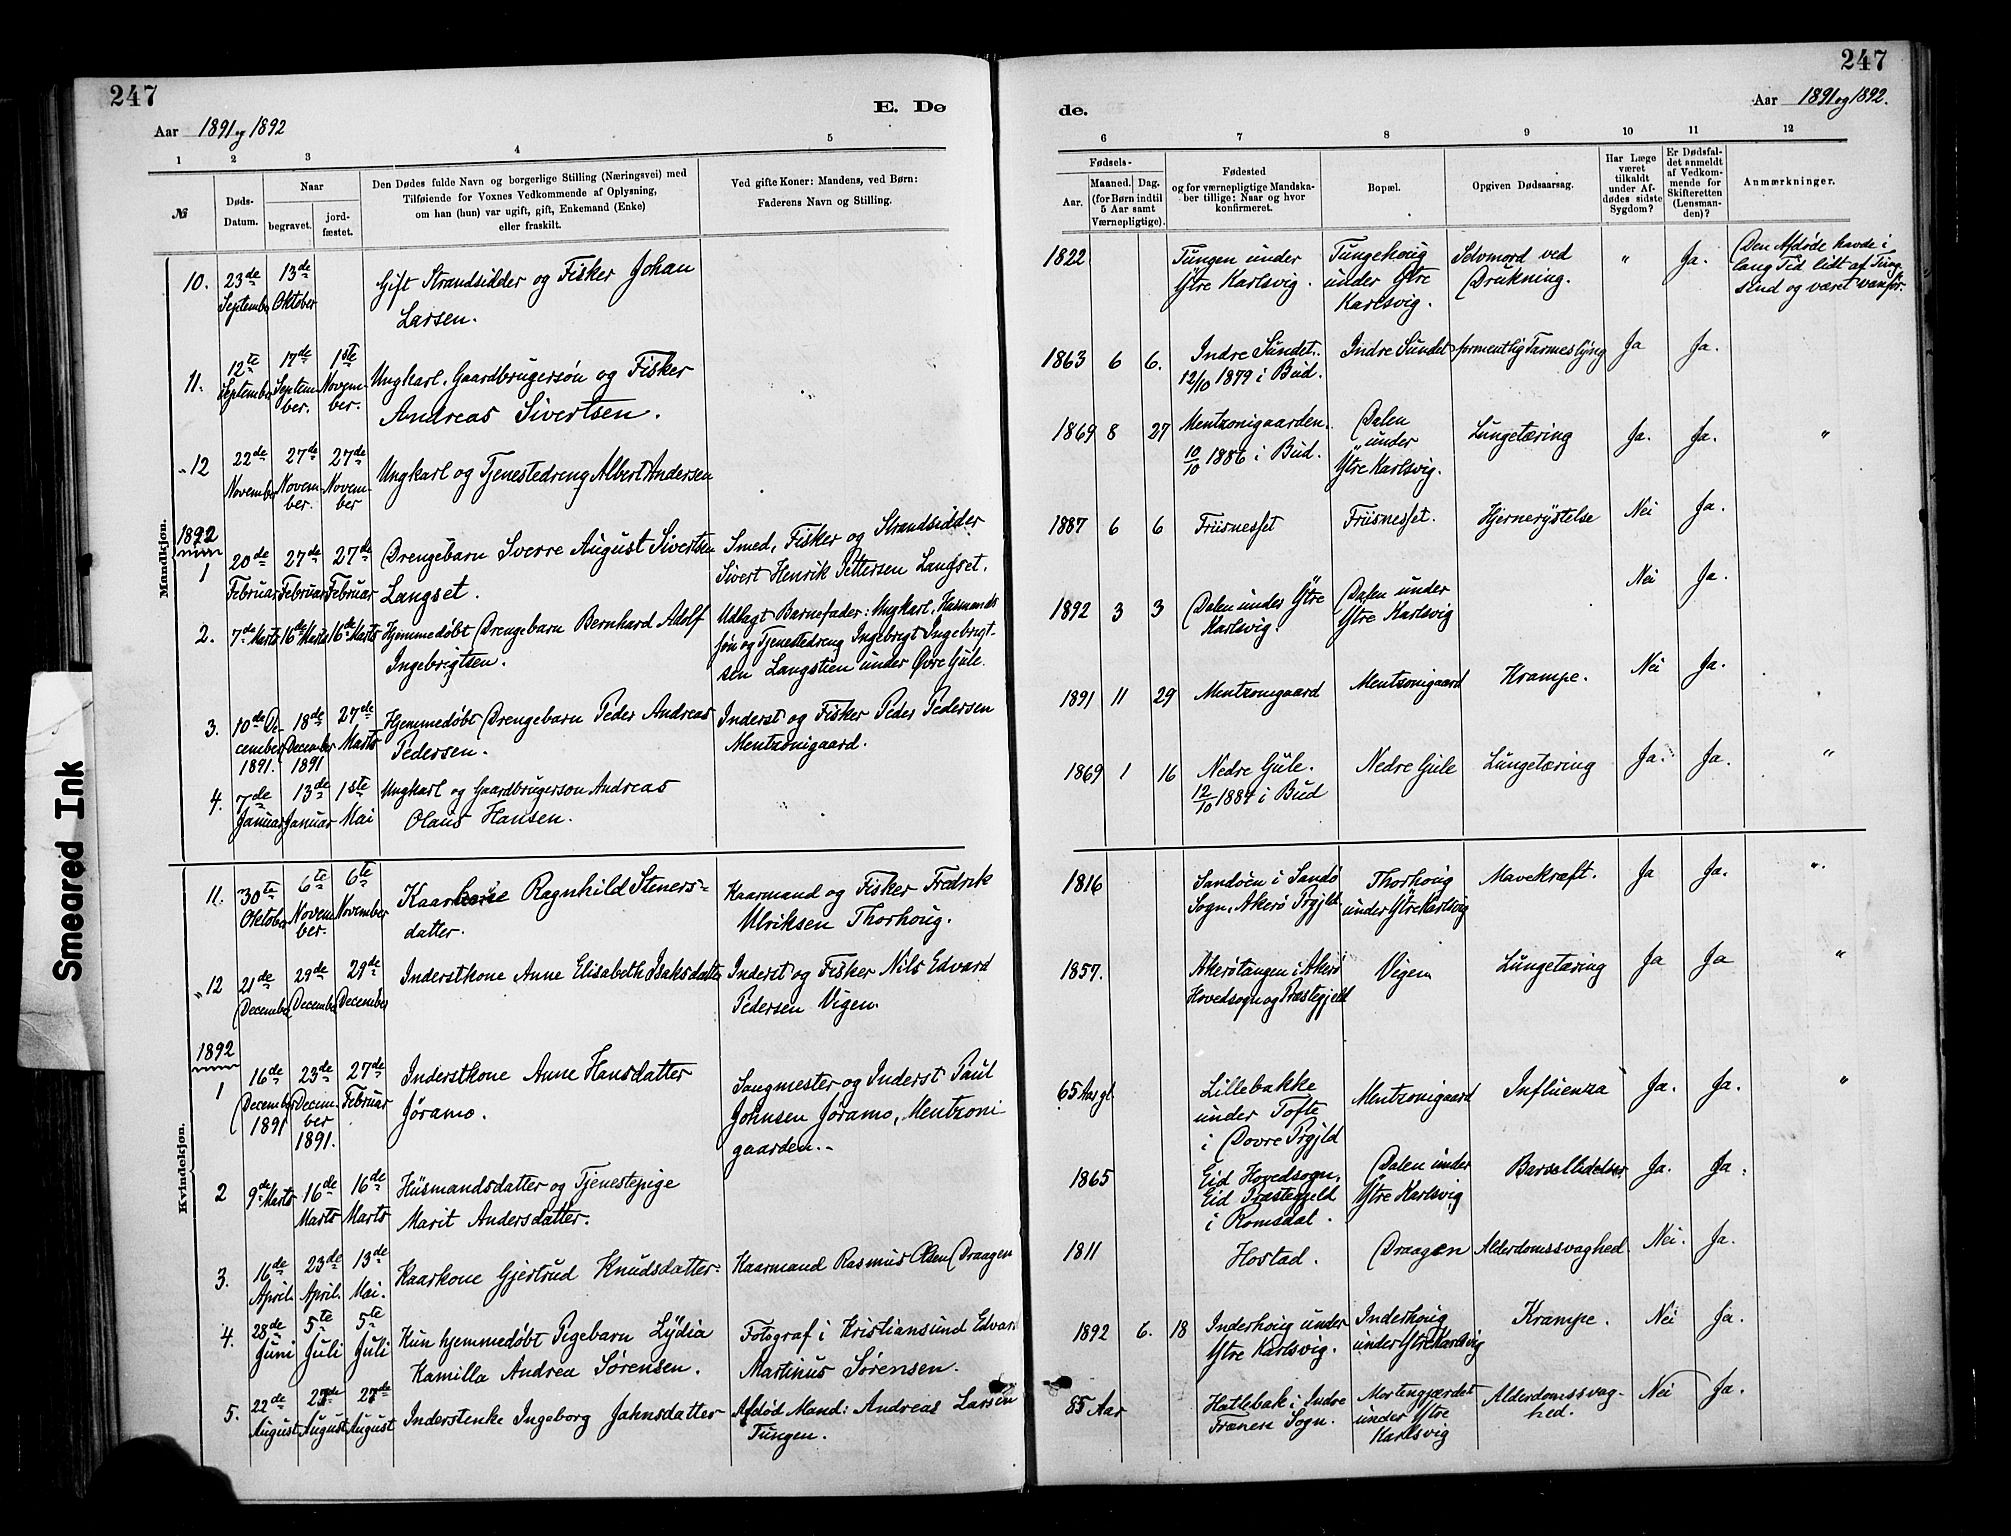 247
247
E. Dø
de.
Aar 1891 og 1892
Aar 1891 og 1892.
1 2 3 4 5
6 7 8 9 10 11 12
№
Døds-
Datum.
Naar
begravet.
jord-
fæstet.
Den Dødes fulde Navn og borgerlige Stilling (Næringsvei) med
Tilføiende for Voxnes Vedkommende af Oplysning,
om han (hun) var ugift, gift, Enkemand (Enke)
eller fraskilt.
Ved gifte Koner: Mandens, ved Børn:
Faderens Navn og Stilling.
Fødsels-
Aar.
Maaned. Dag.
(for Børn indtil
5 Aar samt
Værnepligtige).
Fødested
og for værnepligtige Mandska-
ber tillige: Naar og hvor
konfirmeret.
Bopæl.
Opgiven Dødsaarsag.
Har Læge
været
tilkaldt
under Af-
dødes sidste
Sygdom?
Er Dødsfal-
det anmeldt
af Vedkom-
mende for
Skifteretten
(Lensman-
den)?
Anmærkninger.
Mandkjøn.
10.
23de
September
13de
Oktober
Gift Strandsidder og Fisker Johan
Larsen.
1822
Tungen under
Ytre Karlsvig.
Tungehoug
under Ytre
Karlsvig.
Selvmord ved
Drukning.
"
Ja.
Den Afdøde havde i
lang Tid lidt af Tung-
sind og været vanfør.
11.
12te
September
17de
Septem-
ber.
1ste
Novem-
ber.
Ungkarl, Gaardbrugersøn og Fisker
Andreas Sivertsen.
1863 6 6.
Indre Sundet.
12/10 1879 i Bud.
Indre Sundet
formentlig Tarmeslyng
Ja
Ja.
" 12
22de
November
27de
Novem-
ber.
27de
Novem-
ber
Ungkarl og Tjenestedreng Albert Andersen
1869 8 27
Mentzonigaarden.
10/10 1886 i Bud.
Dalen
under
Ytre Karlsvig.
Lungetæring
Ja.
Ja.
"
1892
1
20de
Februar
27de
Februar
27de
Februar
Drengebarn Sverre August Sivertsen
Langset.
Smed, Fisker og Strandsidder
Sivert Henrik Pettersen Langset.
1887 6 6
Friisnesset
Friisnesset.
Hjernerystelse
Nei
Ja.
2.
7de Marts
16de Marts
16de Marts
Hjemmedøbt Drengebarn Bernhard Adolf
Ingebrigtsen.
Udlagt Barnefader: Ungkarl, Husmands
søn og Tjenestedreng Ingebrigt Ingebrigt-
sen Langstien under Øvre Gule.
1892 3 3
Dalen under Ytre
Karlsvig.
Dalen under
Ytre Karlsvig
Nei
Ja.
3.
10de De-
cember
1891.
18de
December
1891
27de
Marts
Hjemmedøbt Drengebarn Peder Andreas
Pedersen.
Inderst og Fisker Peder Pedersen
Mentzonigaard.
1891 11 29
Mentzonigaard
Mentzonigaard
Krampe.
Nei
Ja.
4.
7de
Januar
13de
Januar
1ste
Mai
Ungkarl og Gaardbrugersøn Andreas
Olaus Hansen.
1869 1 16
Nedre Gule.
12/10 1884 i Bud
Nedre Gule
Lungetæring
Ja.
Ja.
"
Kvindekjøn.
11.
30te
Oktober
6te
Novem-
ber.
6te
November
Kaarkone Ragnhild Steners-
datter.
Kaarmand og Fisker Fredrik
Ulriksen Thorhoug.
1816
Sandøen i Sandø
Sogn, Akerø Prgjld
Thorhoug
under Ytre Karlsvig
Mavekræft.
Ja
Ja.
".
" 12
21de
December
29de
December
29de
December
Inderstkone Anne Elisabeth Isaksdatter
Inderst og Fisker Nils Edvard
Pedersen Vigen.
1857.
Akerøtangen i Akerø
Hovedsogn og Præstegjeld
Vigen
Lungetæring
Ja
Ja
"
1892
1
16de
December
1891
23de
Decem-
ber
1891.
27de
Februar
Inderstkone Anne Hansdatter
Jøramo.
Sangmester og Inderst Paul
Johnsen Jøramo, Mentzoni
gaarden.-
65 Aar gl.
Lillebakke
under Tofte
i Dovre Prgjld
Mentzonigaard
Influenza
Ja.
Ja.
"
2
9de Marts
16de
Marts
16de
Marts
Husmandsdatter og Tjenestepige
Marit Andersdatter.
1865
Eid Hovedsogn,
Eid Præstegjeld
i Romsdal.
Dalen under
Ytre Karlsvig
Barselfeber
Ja.
Ja.
3.
16de
April.
23de
April.
13de
Mai.
Kaarkone Gjertrud Knudsdatter.
Kaarmand Rasmus Olsen Draagen
1811
Hostad.
Draagen
Alderdomssvaghed.
Nei.
Ja.
4.
28de
Juni
5te
Juli
5te
Juli
Kun hjemmedøbt Pigebarn Lydia
Kamilla Andrea Sørensen.
Fotograf i Kristiansund Edvard
Martinus Sørensen.
1892 6. 18
Inderhoug under
Ytre Karlsvig.
Inderhoug
under Ytre Karlsvig
Krampe.
Nei
Ja.
5.
22de
August
27de
August
27de
August
Inderstenke Ingeborg Jahnsdatter
Afdød Mand: Andreas Larsen
Tungen.
85 Aar
Hatlebak i Indre
Frænen Sogn.
Mortengjærdet
under Ytre
Karlsvig
Alderdomssvag-
hed.
Nei
Ja.
Smeared Ink